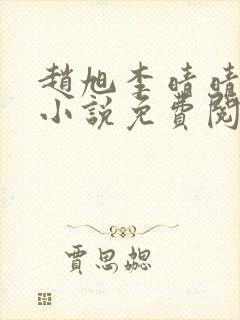 趙旭李晴晴
小說免費閱
賈思勰